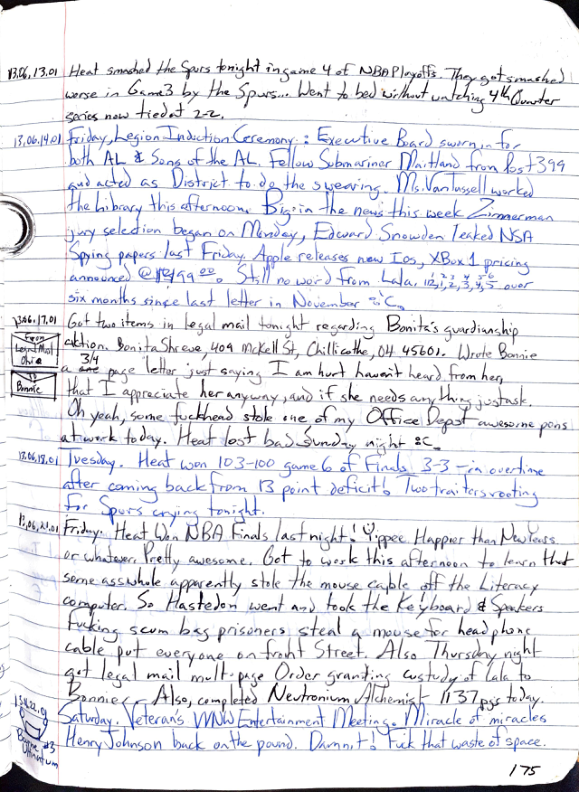 13.06.13.01 Heat smashed the Spurs tonight in game 4 of NBA Playoffs. They got smashed
worse in Game 3 by the Spurs... Went to bed without watching 4th Quarter
series now tied at 2-2.
13.06.14.01 Friday, Legion Induction Ceremony: Executive Board sworn in for
both AL & Sons of the AL. Fellow Submariner Maitland from Post 399
and acted as District to do the swearing. Ms. VanTassell worked
the Library this afternoon. Big in the news this week Zimmerman
jury selection began on Monday, Edward Snowden leaked NSA
Spying papers last Friday. Apple releases new Ios, XBox 1 pricing
announced @ $499.00. Still no word from Lala. 12,1,2,3,4,5 over
1 2 3 4 5 6
six months since last letter in November :C
13.06.17.01 Got two items in legal mail tonight regarding Bonita's guardianship
From
Legal Mail
Ohio
aktion. Bonita Shreve, 409 McKell St, Chillicothe, OH 45601. Wrote Bonnie
a 3/4 page letter just saying I am hurt haven't heard from her,
To
Bonnie
that I appreciate her anyway, and if she needs anything just ask.
Oh yeah, some fuckhead stole one of my Office Depot awesome pens
at work today. Heat lost bad Sunday night :C
13.06.18.01 Tuesday. Heat won 103-100 game 6 of Finals 3-3 - in overtime
after coming back from 13 point deficit! Two traiters rooting
for Spurs crying tonight.
13.06.21.01 Friday. Heat Won NBA Finals last night! Yippee. Happier than New Years
or whatever. Pretty awesome. Got to work this afternoon to learn that
some asswhole apparently stole the mouse cable off the Literacy
computer. So Hastedon went and took the Keyboard & Speakers
Fucking scum bag prisoners steal a mouse for head phone
cable put everyone on front Street. Also Thursday night
got legal mail mult-page Order granting custody of Lala to
Bonnie. Also, completed Neutronium Alchemist 1137 pgs today.
Saturday. Veterans WNW Entertainment Meeting. Miracle of miracles
Henry Johnson back on the pound. Damnit! Fuck that waste of space.
175